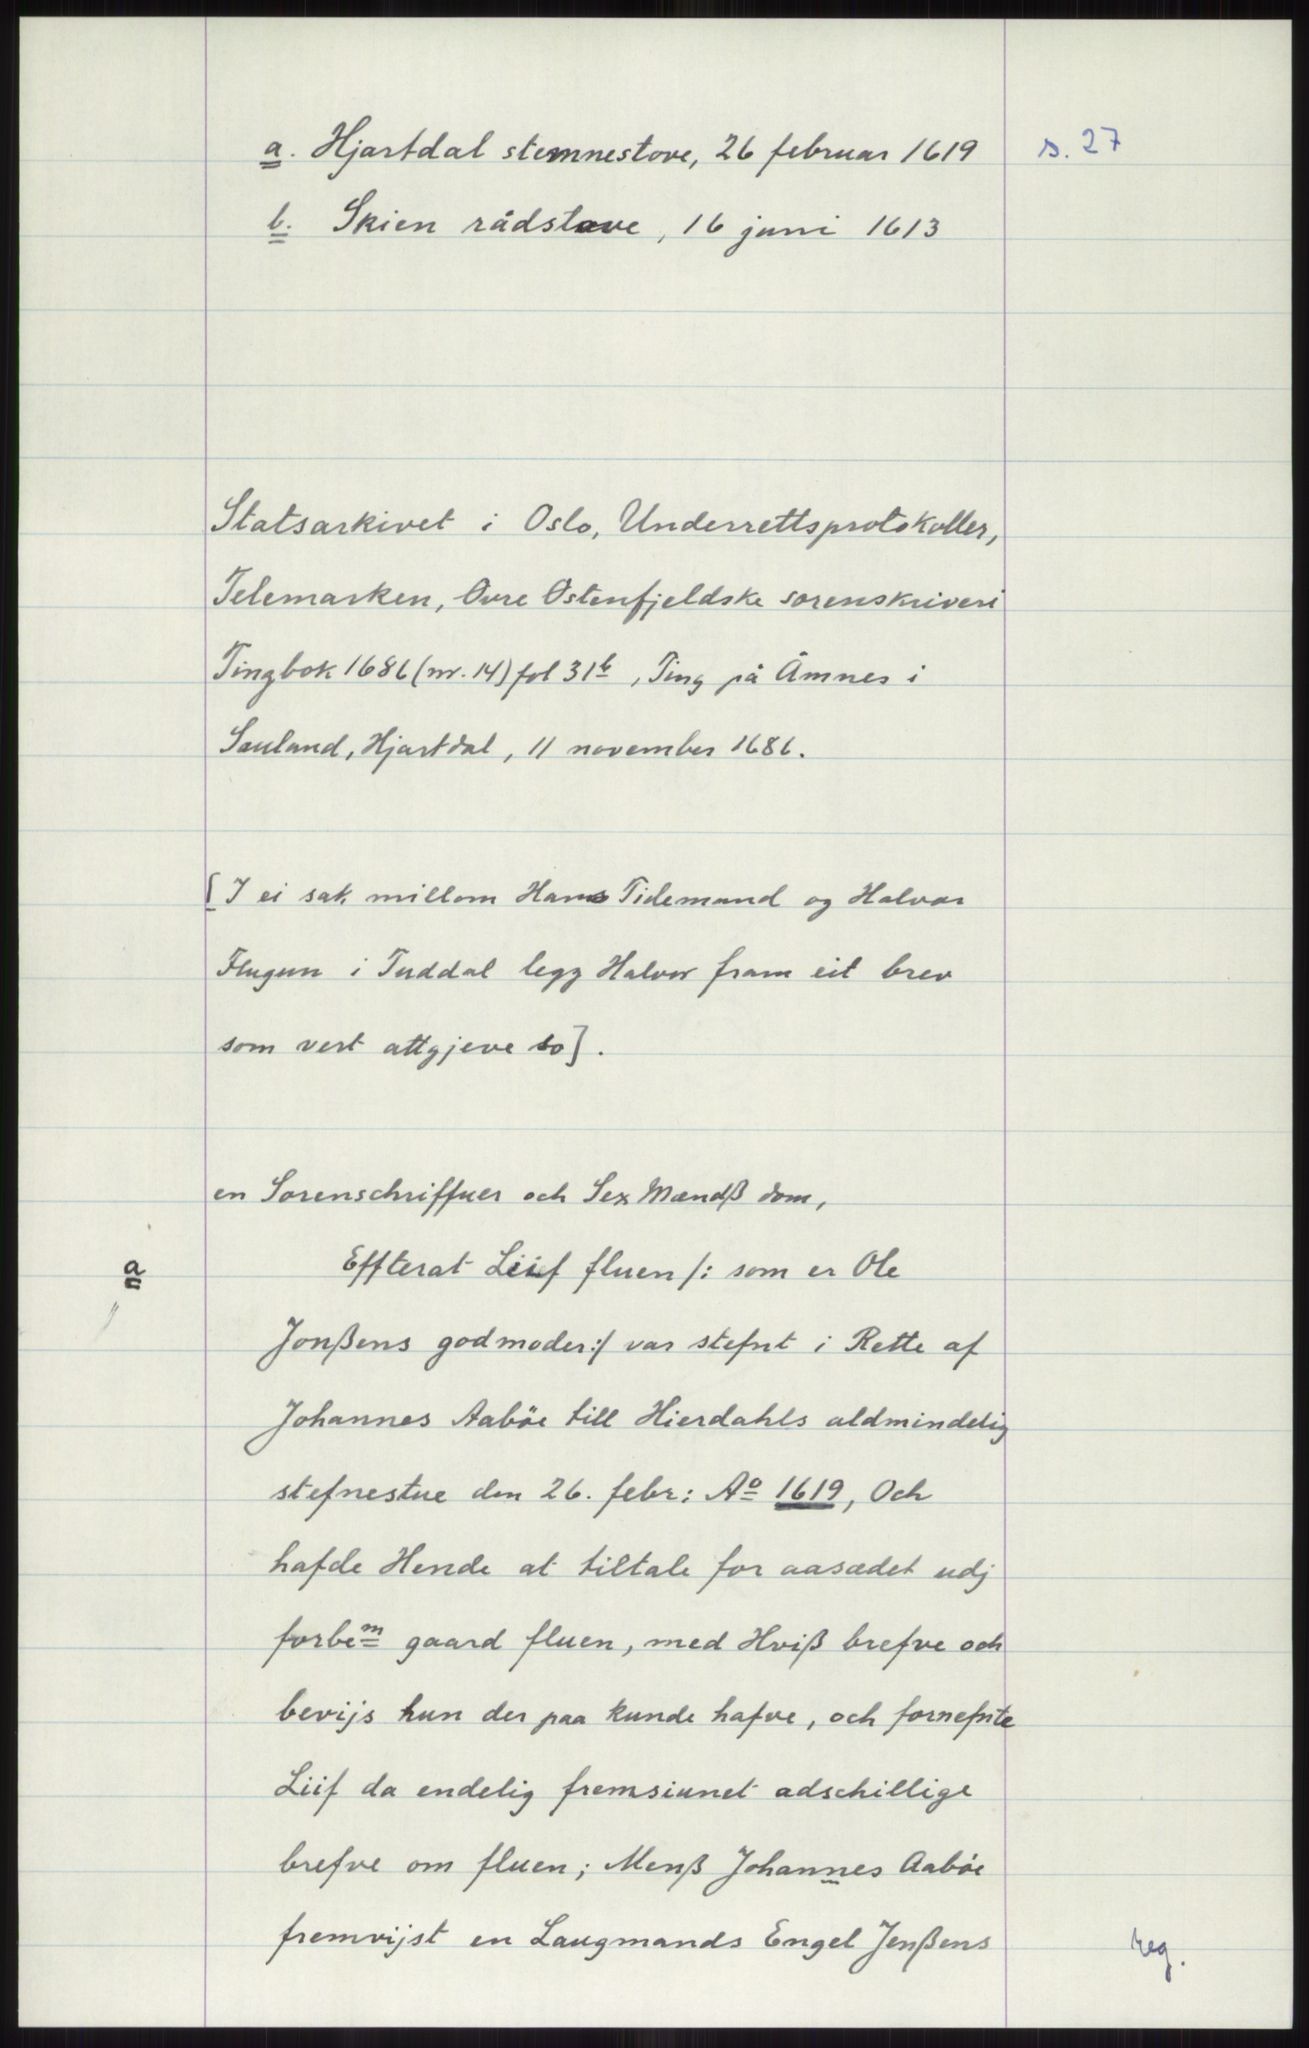 a. Hjartdal stemnestove, 26 februar 1619
s. 27
b. Skien rådstove, 16 juni 1613
Statsarkivet i Oslo, Underrettsprotokoller,
Telemarken, Øvre Østenfjeldske sorenskriveri
Tingbok 1686 (nr. 14) fol 31b, Ting på Åmnes i
Sauland, Hjartdal, 11 november 1686.
[I ei sak millom Hans Tidemand og Halvor
Flugun i Tuddal legg Halvor fram eit brev
som vert attgjeve so].
en Sorenschriffuer och Sex Mændß dom,
a
Effterat Liif fluen /: som er Ole
Jonßens godmoder:/ var stefnt i Rette af
Johannes Aabøe till Hierdahls aldmindelig
stefnestue den 26. febr: Aº 1619, Och
hafde Hende at tiltale for aasædet udj
forbem gaard fluen, med Hviß brefve och
bevijs hun der paa kunde hafve, och fornefnte
Liif da endelig fremsiunet adschillige
brefve om fluen; Menß Johannes Aabøe
fremvijst en Laugmands Engel Jenßens
reg.